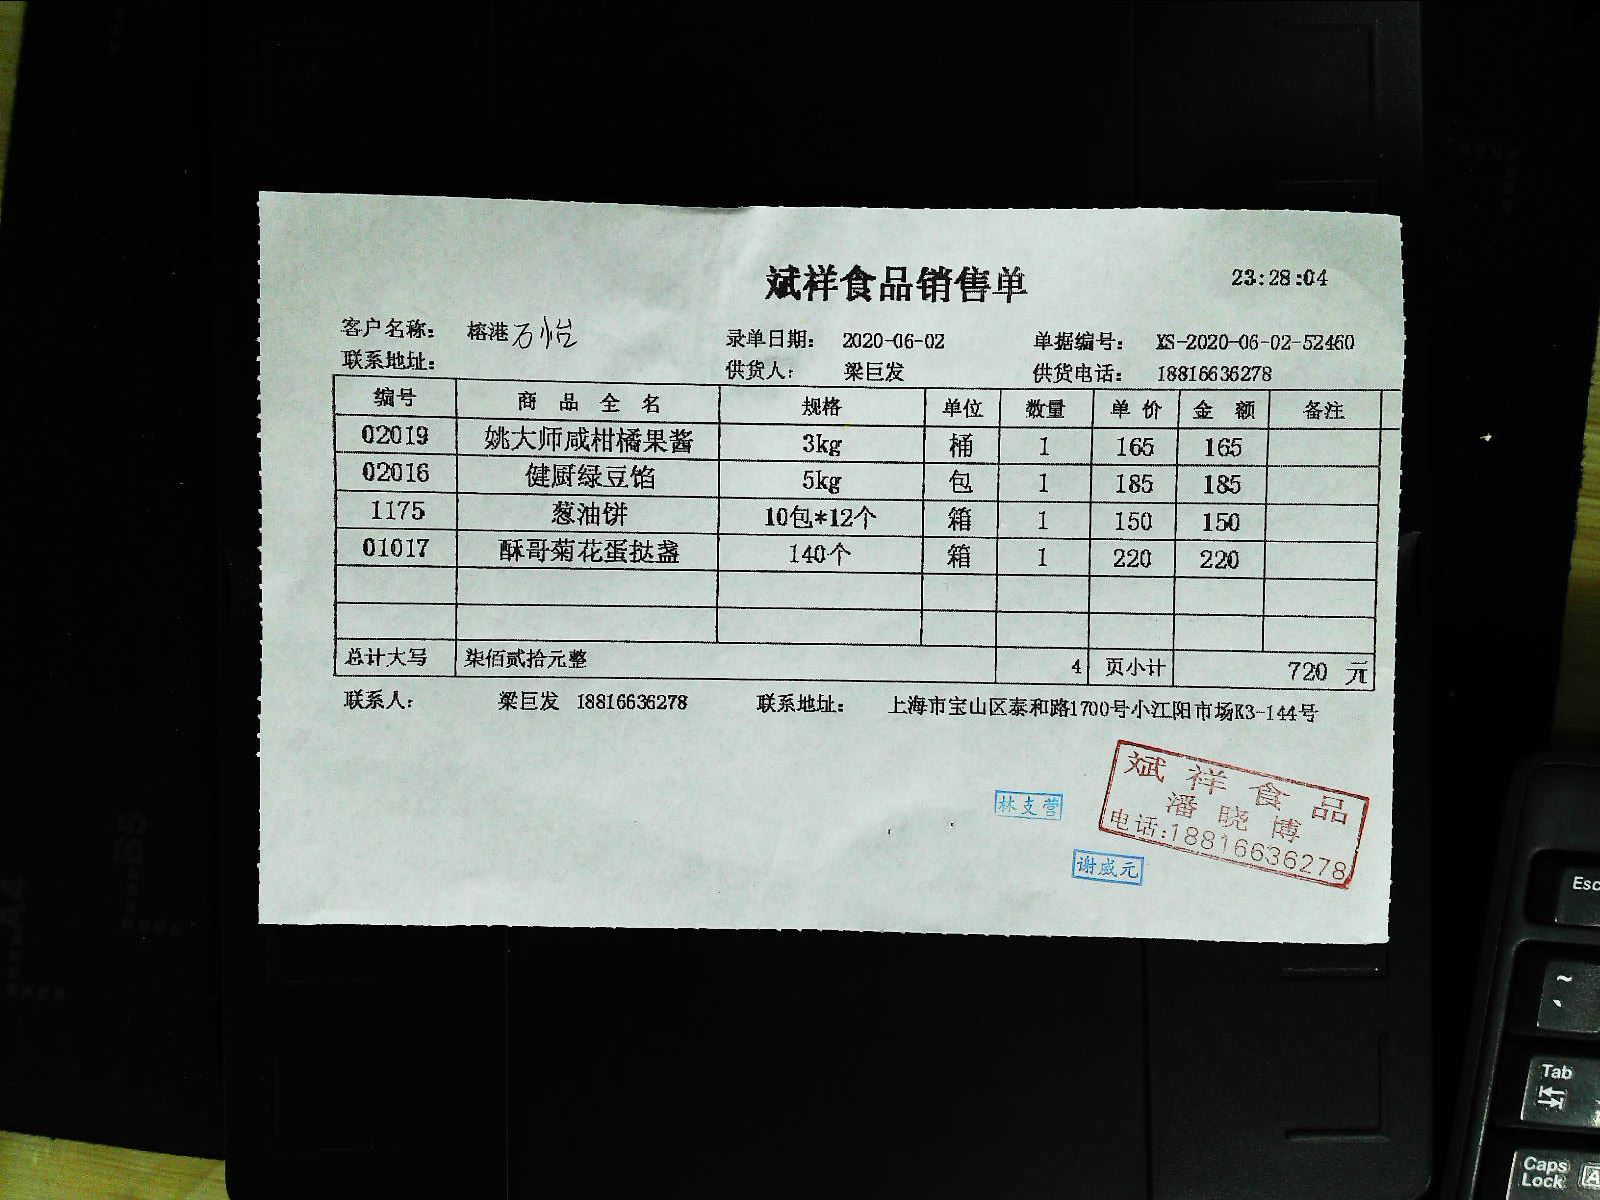 斌祥食品销售单 23:28:04
客户名称： 榕港万怡 录单日期： 2020-06-02 单据编号： XS-2020-06-02-52460
联系地址： 供货人： 梁巨发 供货电话： 18816636278
编号 商品全名 规格 单位 数量 单价 金额 备注
02019 姚大师咸柑橘果酱 3kg 桶 1 165 165
02016 健厨绿豆馅 5kg 包 1 185 185
1175 葱油饼 10包*12个 箱 1 150 150
01017 酥哥菊花蛋挞盏 140个 箱 1 220 220
总计大写 柒佰贰拾元整 4 页小计 720 元
联系人： 梁巨发 18816636278 联系地址： 上海市宝山区泰和路1700号小江阳市场K3-144号
斌祥食品
潘晓博
电话:18816636278
林支营
谢盛元
B5
A4
Esc
~
Tab
Caps Lock
A